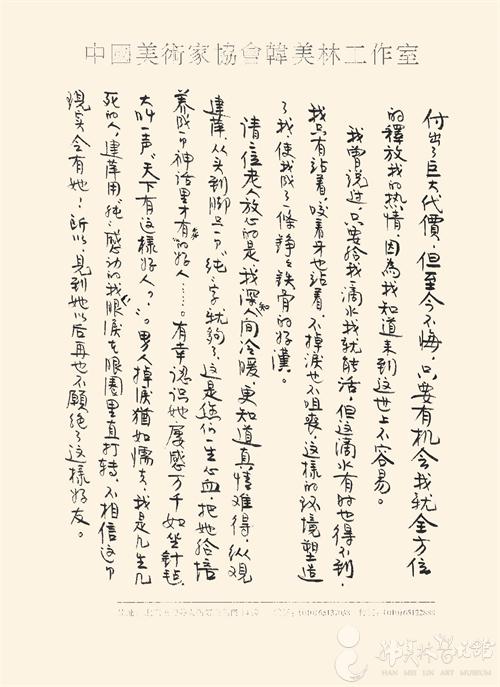 中國美術家協會韓美林工作室
付出了巨大代價，但至今不悔，只要有机会我就全方位
的釋放我的热情，因為我知道来到這世上不容易。
我曾说过，只要给我一滴水我就能活，但这滴水有时也得不到，
我只有站着，咬着牙也站着，不掉淚也不咀喪，这樣的环境塑造
了我，使我成了一條錚々鉄骨的好漢。
请二位老人放心的是，我深知人间冷暖，更知道真情难得，纵观
建萍，从头到脚只一个“純”字就夠了，这是您们一生心血把她给培
养成一个神话里才有的好人……。有幸認识她屡感万千如坐針毡，
大叫一声，天下有這樣好人？。男人掉淚猶如懦夫，我是九生九
死的人，建萍用“純”感动的我眼淚在眼圈里直打转，不相信這个
現实会有她！所以，見到她以后再也不願绝了这樣好友。
韩美林艺术馆
HAN MEI LIN ART MUSEUM